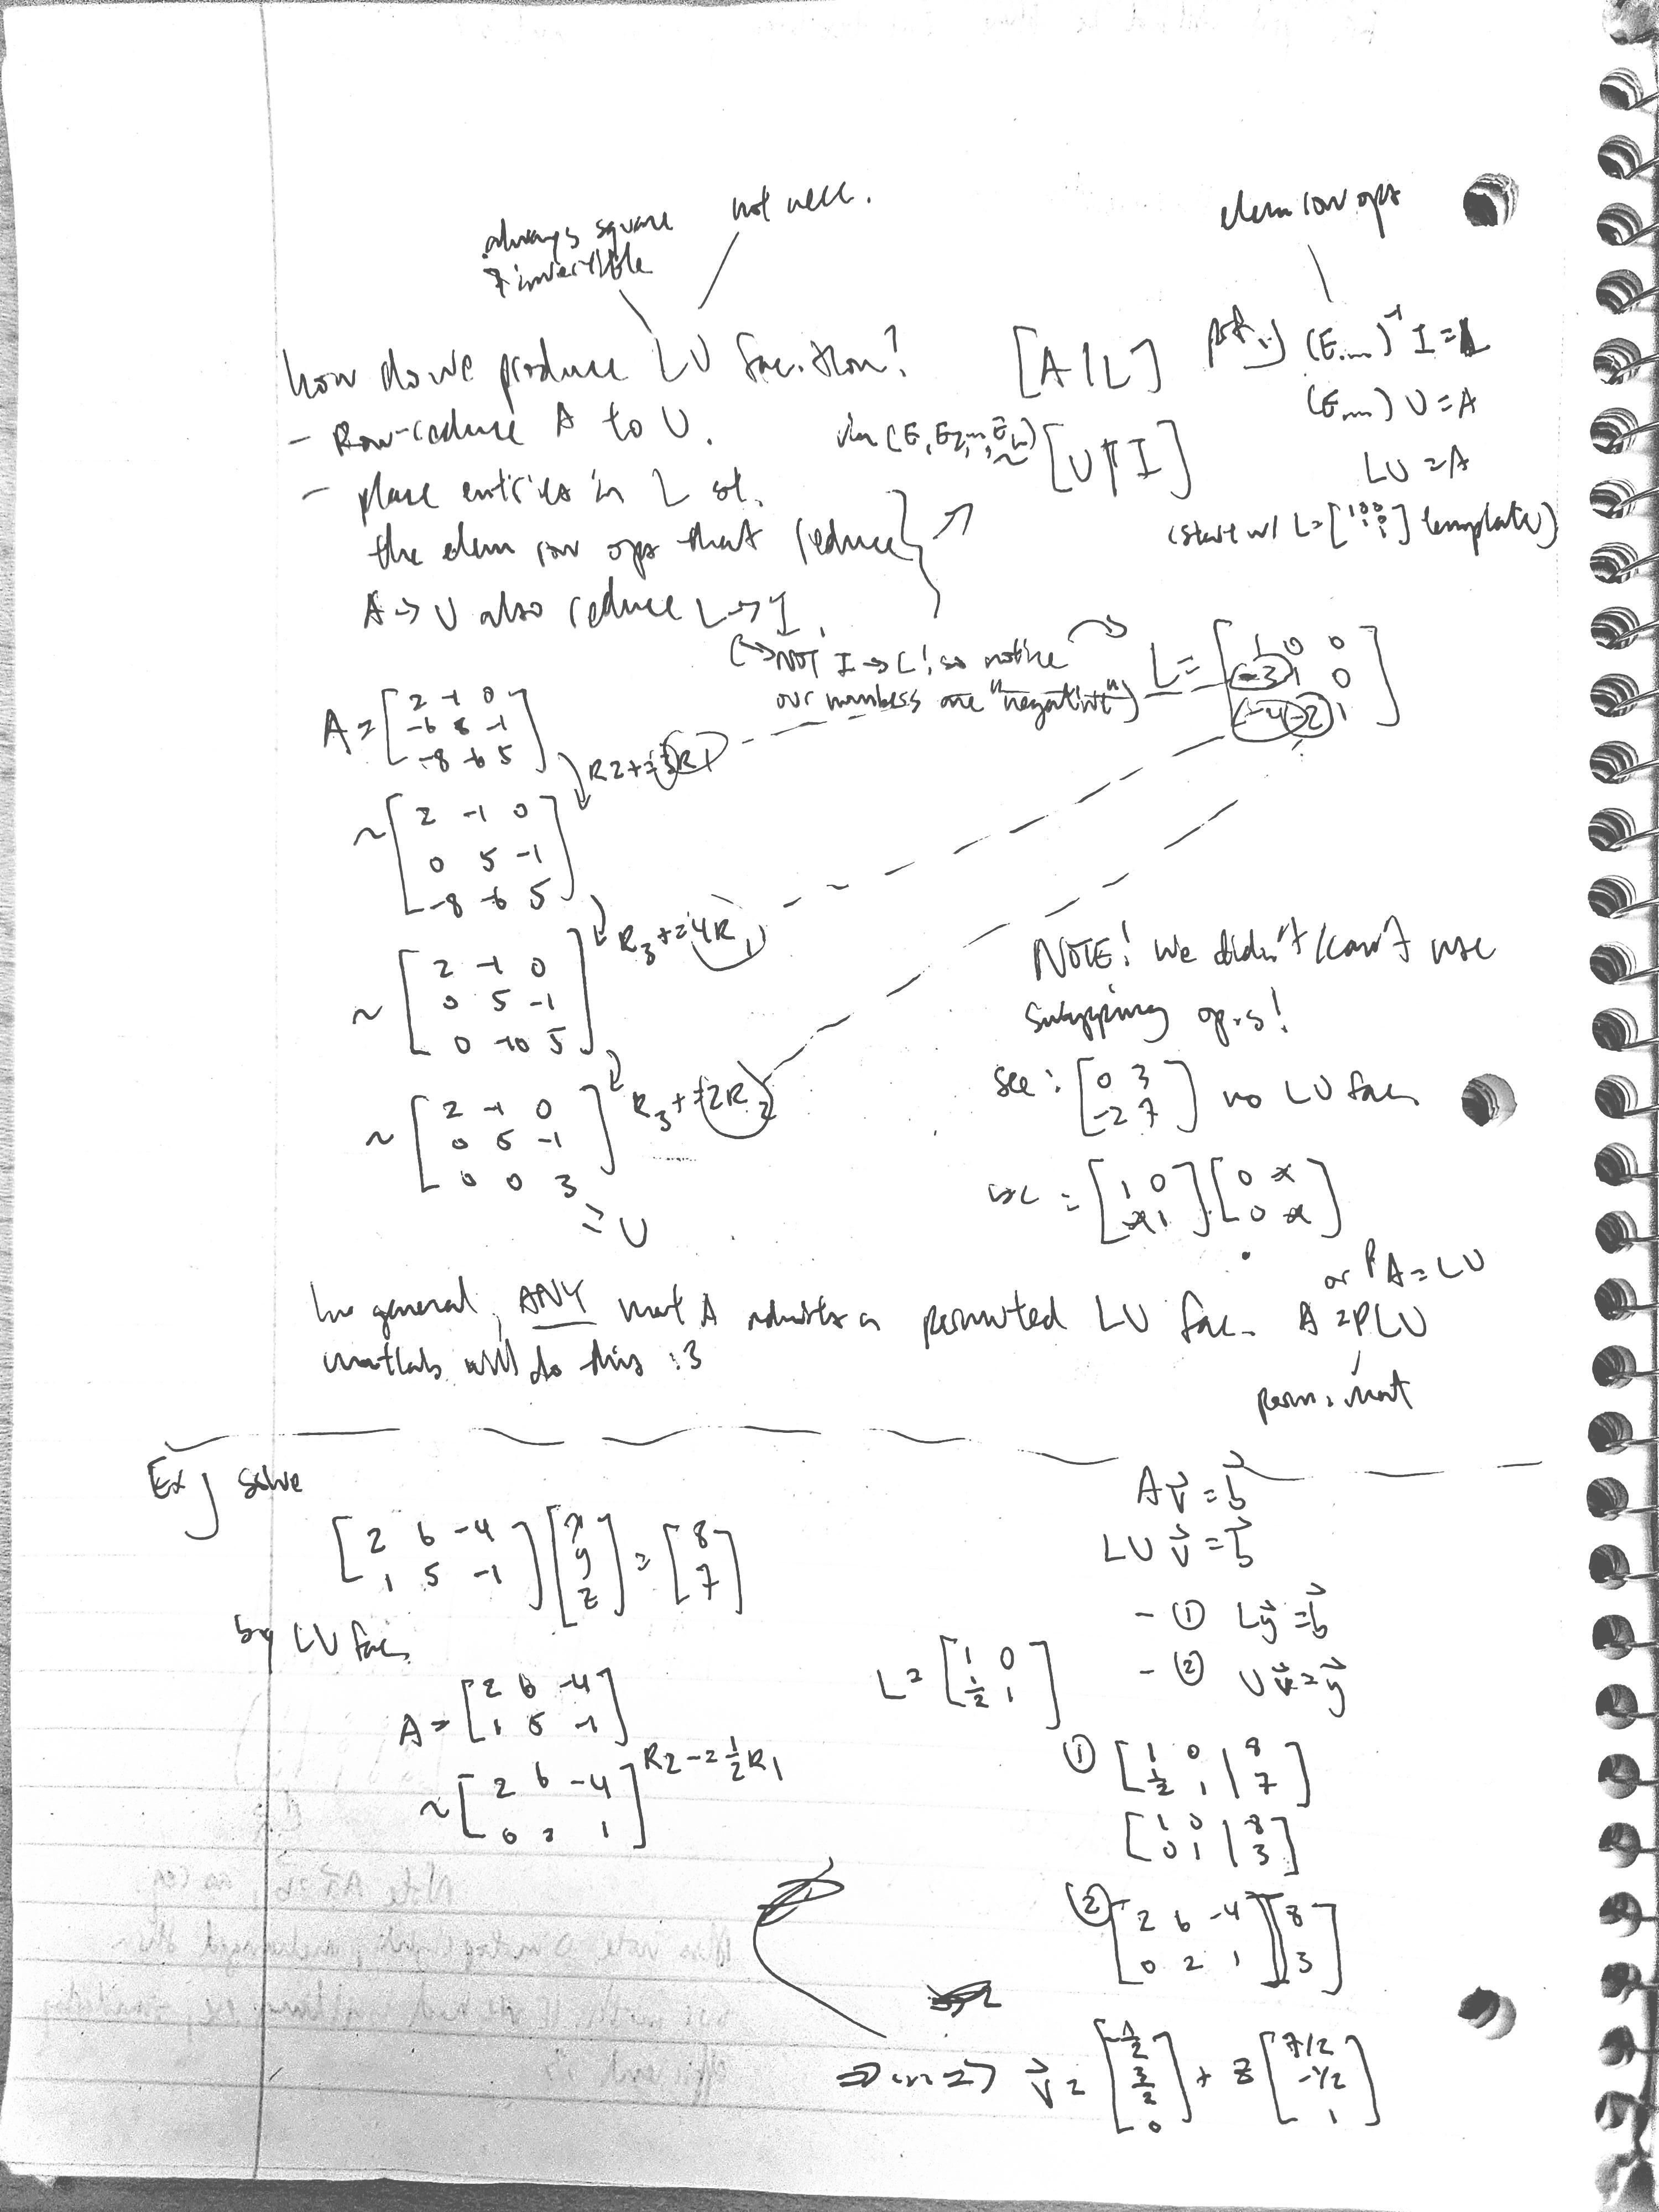 always square
& invertible
not nece.
elem row ops
how do we produce LU fac. tion?
- Row-reduce A to U.
- place entries in L st.
the elem row ops that reduce
A → U also reduce L → I.
(→ NOT I → L! so notice
our numbers are "negative")
[A | L]
[U | I]
(E...)⁻¹ I = L
(E...) U = A
LU = A
(start w/ L = [ 1 0 0 ] template)
L = [ 1 0 0
-3 1 0
-4 -2 1 ]
A = [ 2 -1 0
-6 8 -1
-8 -6 5 ]
R2 += 3R1
~ [ 2 -1 0
0 5 -1
-8 -6 5 ]
R3 += 4R1
~ [ 2 -1 0
0 5 -1
0 -10 5 ]
R3 += 2R2
~ [ 2 -1 0
0 5 -1
0 0 3 ]
= U
NOTE! we didn't/can't use
swapping op.s!
see: [ 0 3
-2 7 ] no LU fac.
bc = [ 1 0
* 1 ] [ 0 *
0 * ]
In general, ANY mat A admits a permuted LU fac. A = PLU
or PA = LU
matlab will do this :3
perm. mat
Ex) solve
[ 2 6 -4
1 5 -1 ] [ x
y
z ] = [ 8
7 ]
by LU fac.
A = [ 2 6 -4
1 5 -1 ]
~ [ 2 6 -4
0 2 1 ]
R2 -= ½R1
Av⃗ = b⃗
LUv⃗ = b⃗
- ① Ly⃗ = b⃗
- ② Uv⃗ = y⃗
L = [ 1 0
½ 1 ]
① [ 1 0 | 8
½ 1 | 7 ]
[ 1 0 | 8
0 1 | 3 ]
② [ 2 6 -4 ] [ 8
0 2 1 ] 3 ]
v⃗ = [ -½
3/2
0 ] + z [ 7/2
-1/2
1 ]